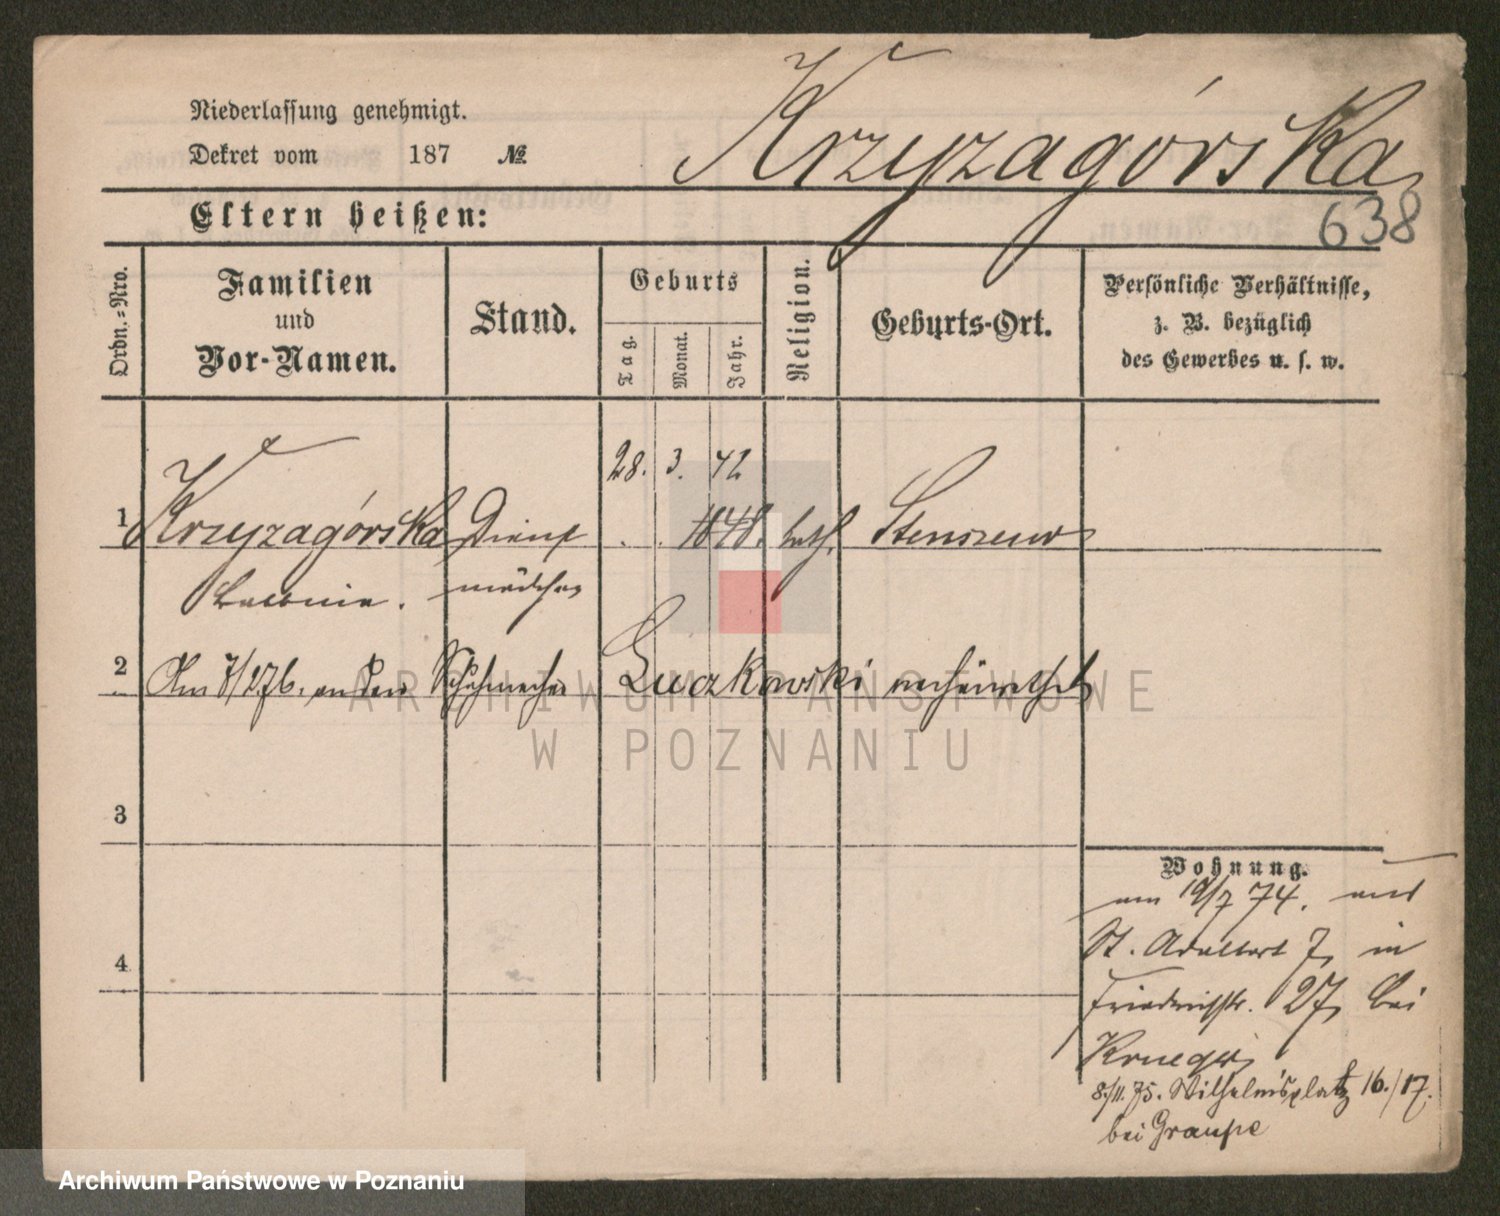 Niederlassung genehmigt.
Dekret vom 187 №
Krzyzagórska
638
Eltern heißen:
Ordn.=Nro.
Familien
und
Vor-Namen.
Stand.
Geburts
Tag.
Monat.
Jahr.
Religion.
Geburts-Ort.
Persönliche Verhältnisse,
z. B. bezüglich
des Gewerbes u. s. w.
28. 3. 42
1 Krzyzagórska Dienst 1848. kath. Stenszewo
mädchen
2 Am 7/2 76. an den Schuhmacher Luczkowski verheirathet
3
Wohnung.
am 19/7 74. aus
St. Adalbert 7, in
Friedrichstr. 27, bei
Krueger,
8./11. 75. Wilhelmsplatz 16./17.
bei Graupe
4
ARCHIWUM PAŃSTWOWE
W POZNANIU
Archiwum Państwowe w Poznaniu